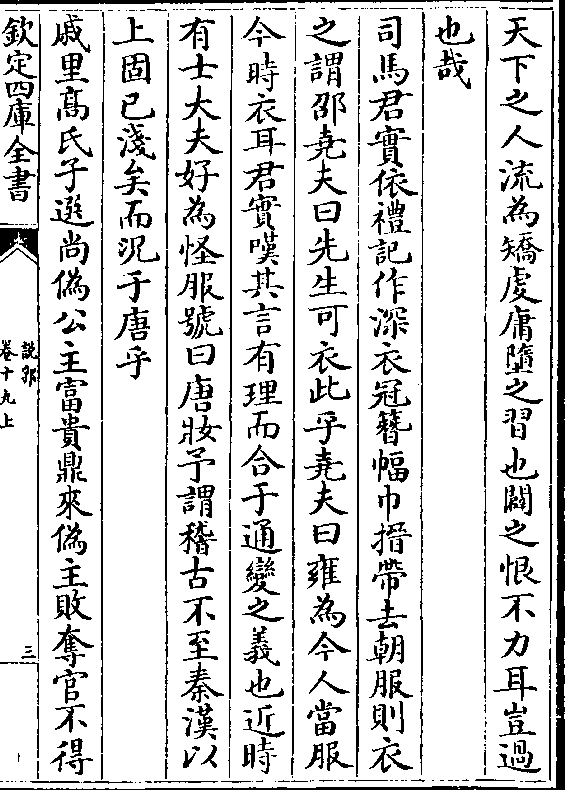 天下之人流為矯虔庸墮之習也闢之恨不力耳豈過
也哉
司馬君實依禮記作深衣冠簪幅巾搢帶去朝服則衣
之謂邵堯夫曰先生可衣此乎堯夫曰雍為今人當服
今時衣耳君實嘆其言有理而合于通變之義也近時
有士大夫好為怪服號曰唐妝予謂稽古不至秦漢以
上固已淺矣而況于唐乎
戚里髙氏子選尚偽公主富貴鼎來偽主敗奪官不得
欽定四庫全書
說郛
卷十九上
三